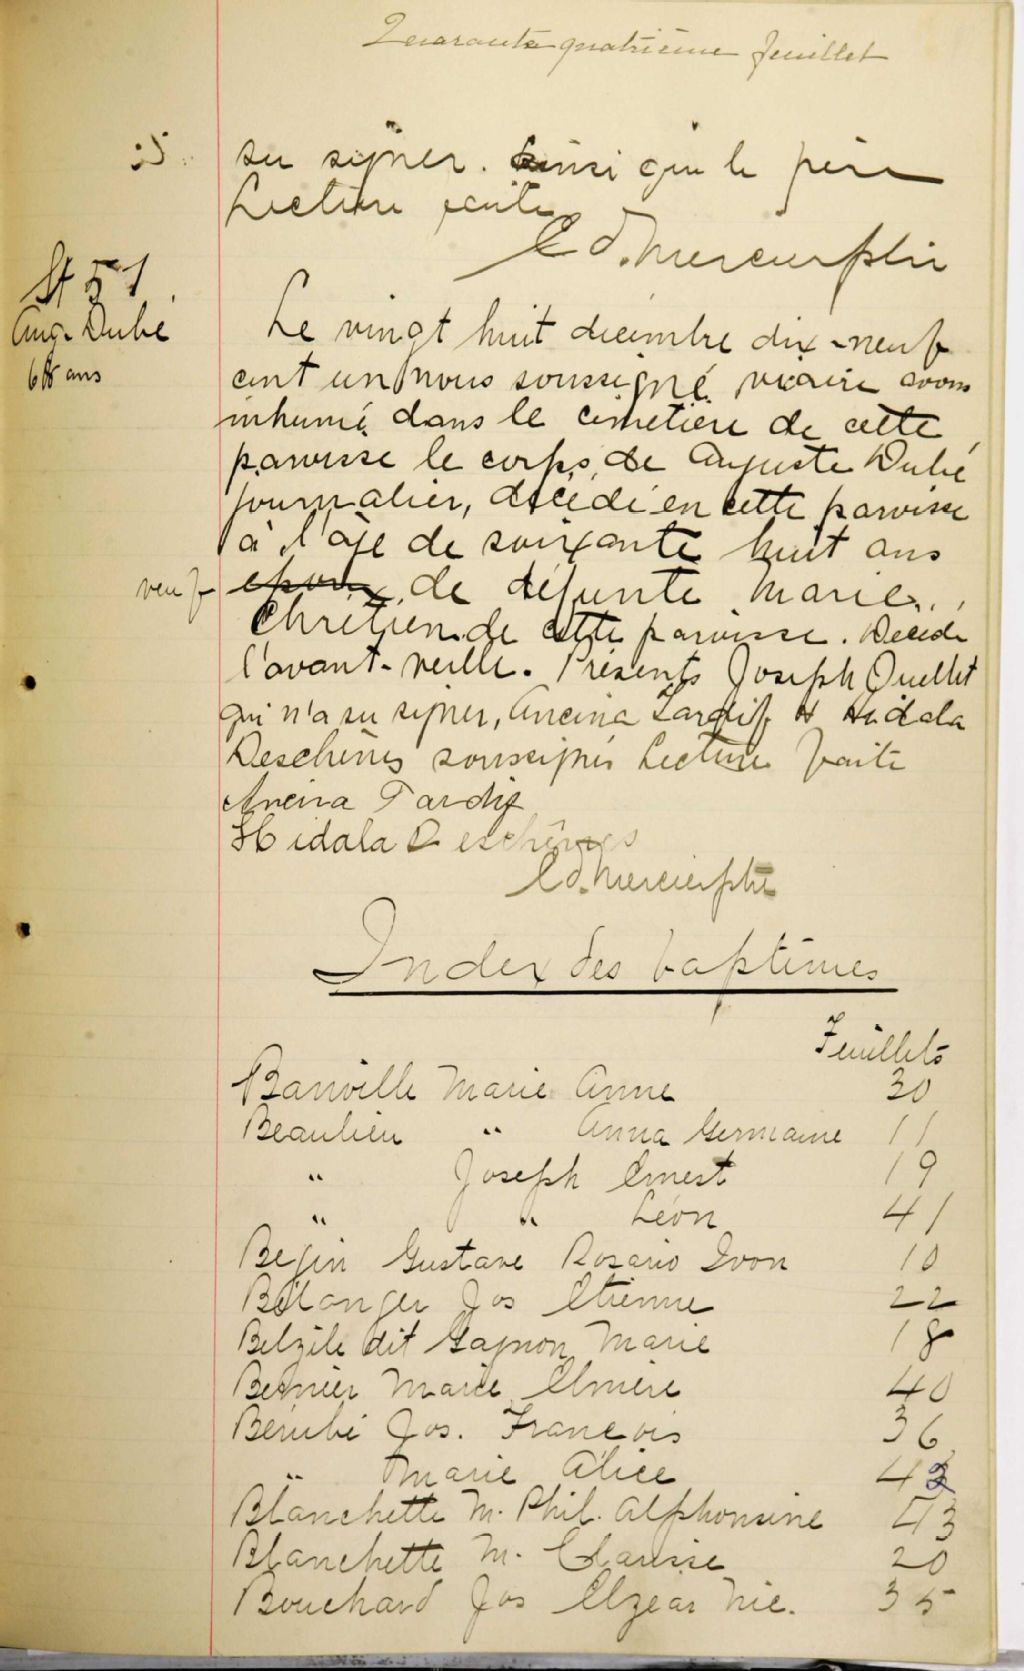 Quarante quatrième feuillet
su signer. Ainsi que le père
Lecture faite
Ed. Mercier ptre
St 51
Aug. Dubé
68 ans
Le vingt huit décembre dix-neuf
cent un nous soussigné vicaire avons
inhumé dans le cimetière de cette
paroisse le corps de Auguste Dubé
journalier, décédé en cette paroisse
à l'âge de soixante huit ans
veuf epoux de défunte Marie
Chrétien de cette paroisse. Décédé
l'avant-veille. Présents Joseph Ouellet
qui n'a su signer, Ancina Tardif et Hidala
Deschênes soussignés Lecture faite
Ancina Tardif
Hidala Deschênes
Ed. Mercier ptre
Index des baptêmes
Feuillets
Banville Marie Anne 30
Beaulieu " Anna Germaine 11
" Joseph Ernest 19
" " Léon 41
Begin Gustave Rosario Ivon 10
Bélanger Jos Etienne 22
Belzile dit Gagnon Marie 18
Bernier Marie Elmire 40
Bérubé Jos. François 36
" Marie Alice 42
Blanchette M. Phil. Alphonsine 43
Blanchette M. Clarisse 20
Bouchard Jos Elzear Nic. 35